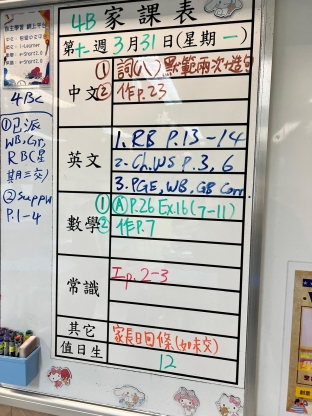 4B 家課表
第七週 3月31日(星期一)
中文
① 詞(八)默範兩次+造句
② 作P.23
英文
1. RB P.13-14
2. Ch.WS P.3, 6
3. PGE, WB, GB Corr.
數學
① (A)P.26 Ex.16(7-11)
② 作P.7
常識
Ip.2-3
其它
家長日回條(如未交)
值日生
12
4Bc
①已派
WB, Gr,
RB(星
期三交)
②Suppw
P.1-4